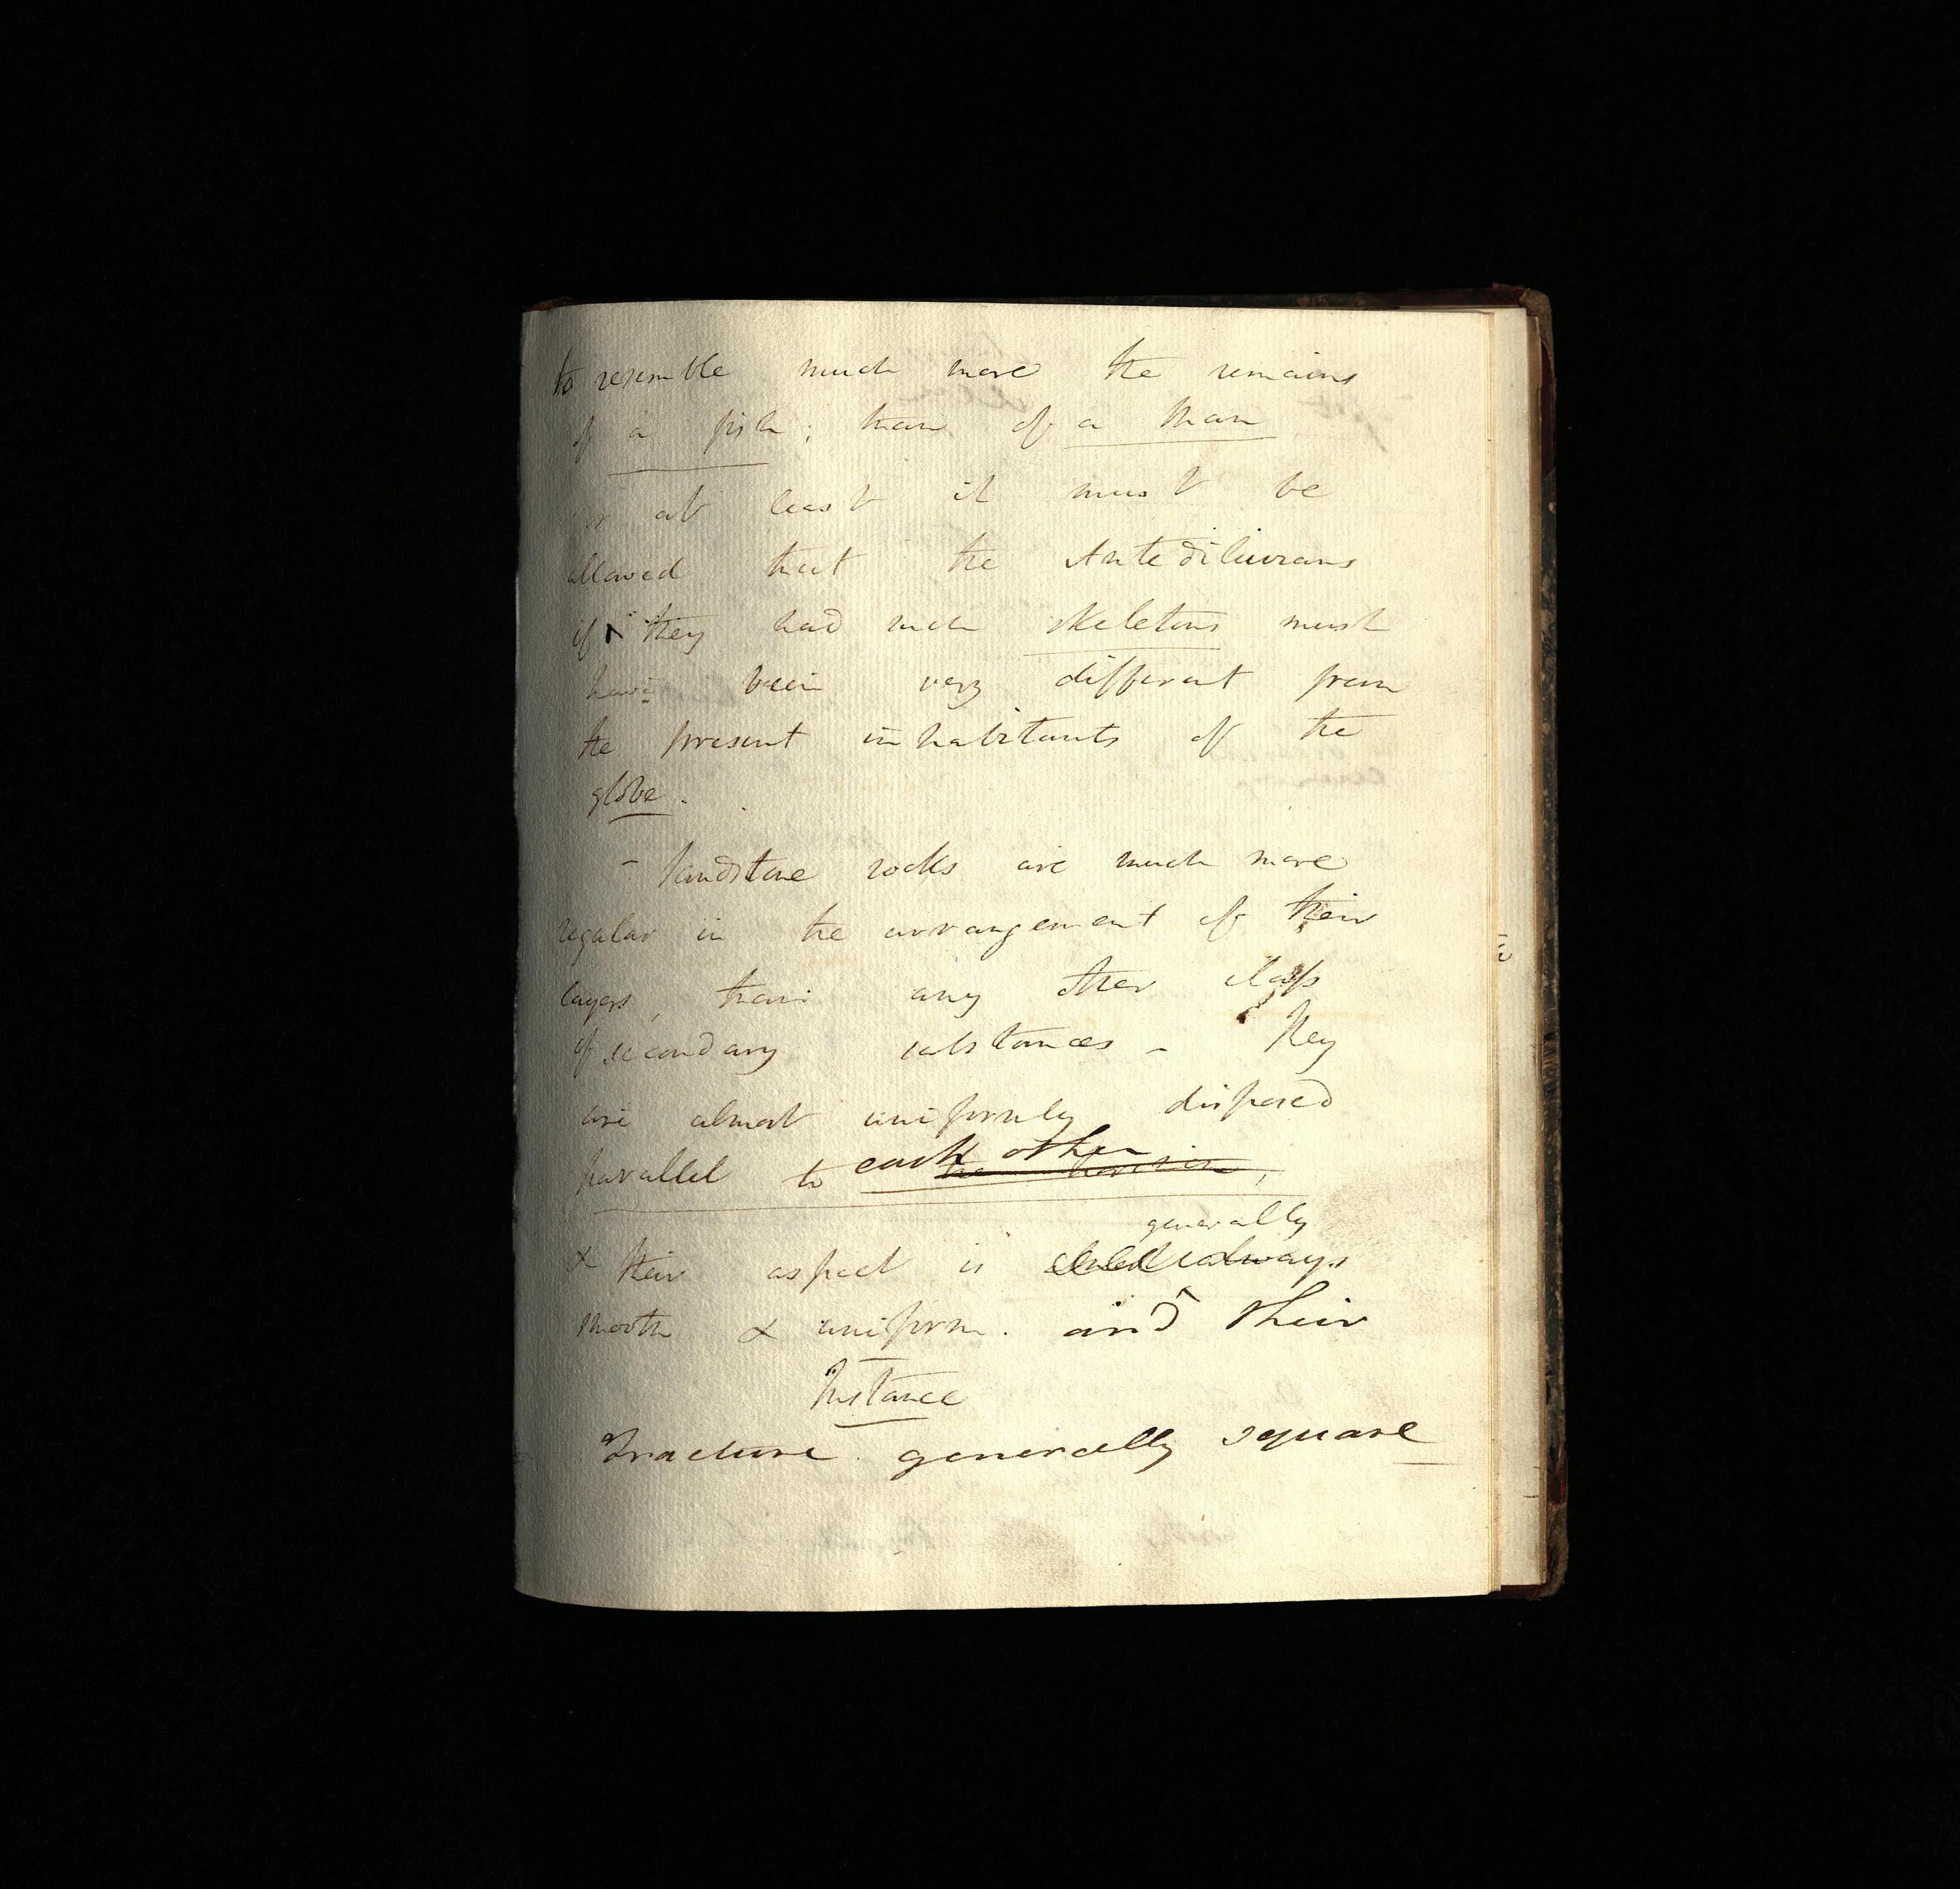 to resemble much more the remains
of a fish; than of a Man
or at least it must be
allowed that the Antediluvians
if they had such skeletons must
have been very different from
the present inhabitants of the
globe.
- Sandstone rocks are much more
regular in the arrangement of their
layers, than any other class
of secondary substances - They
are almost uniformly disposed
each other
parallel to the horizon,
generally
& their aspect is always
smooth & uniform. and their
Instance
Fracture generally square